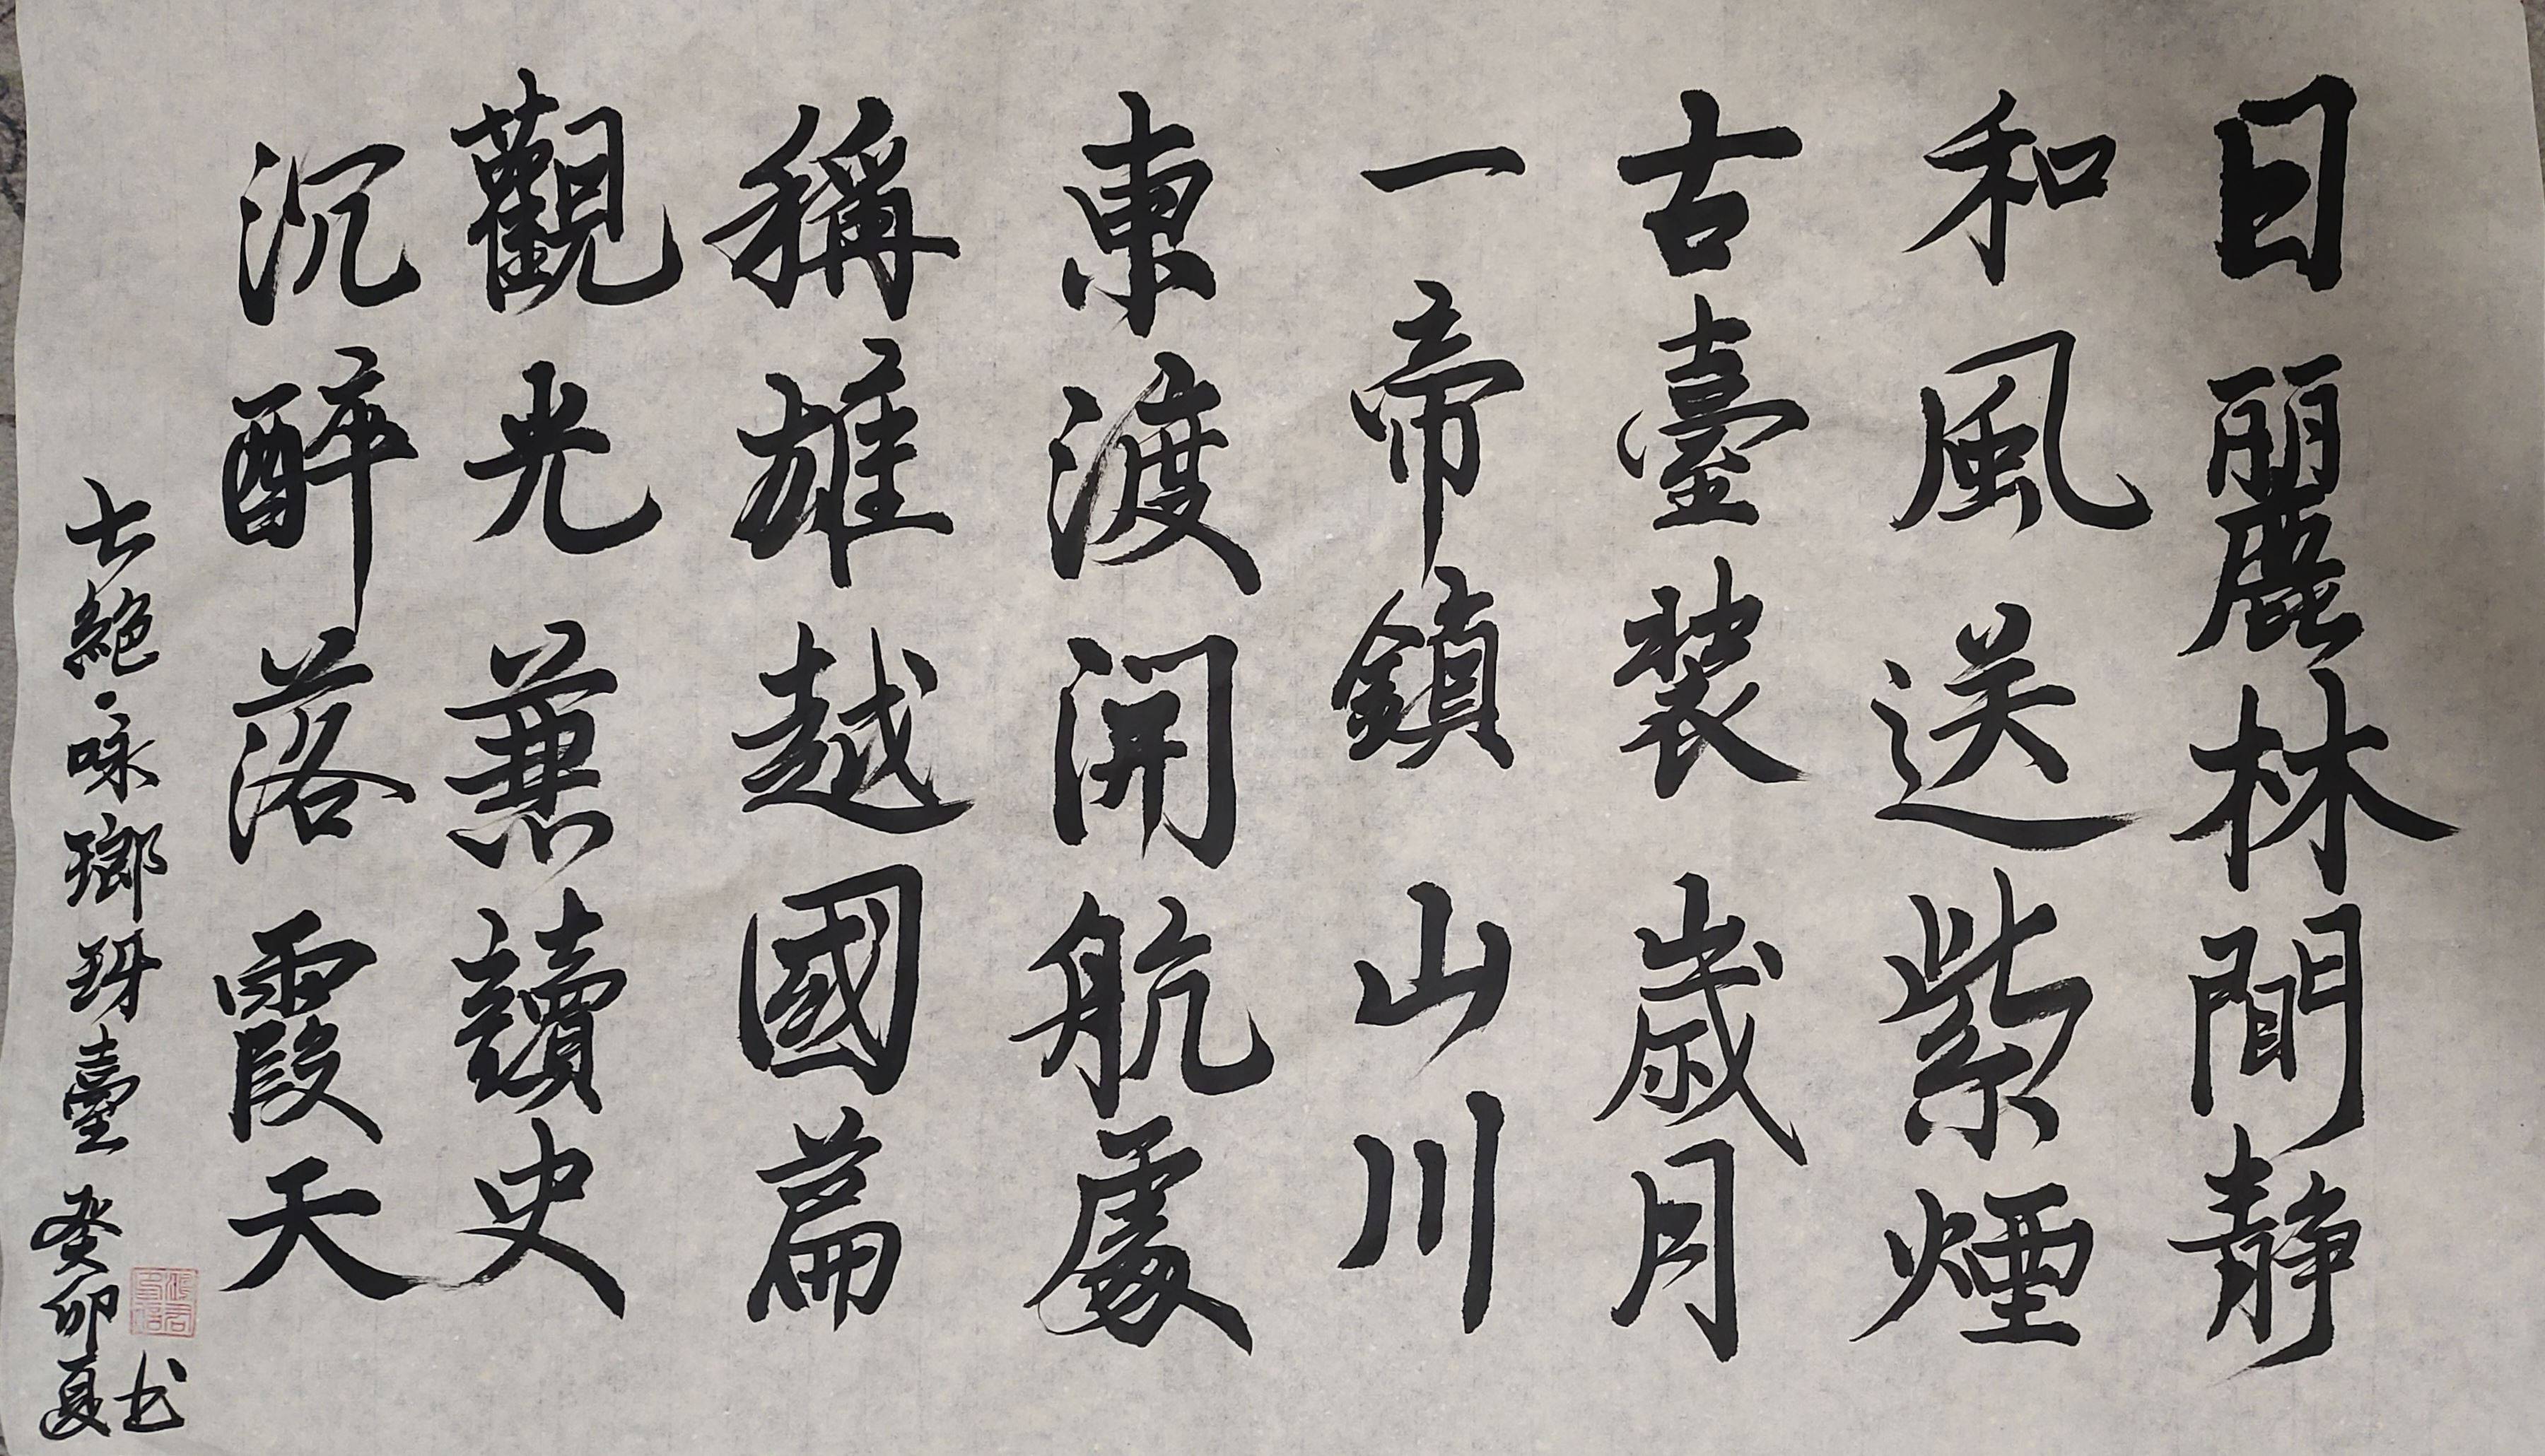 日麗林間靜
和風送紫煙
古臺装歲月
一帝鎖山川
東渡開航處
稱雄越國篇
觀光兼讀史
沉醉落霞天
七絕·咏瑯琊臺 癸卯夏
书